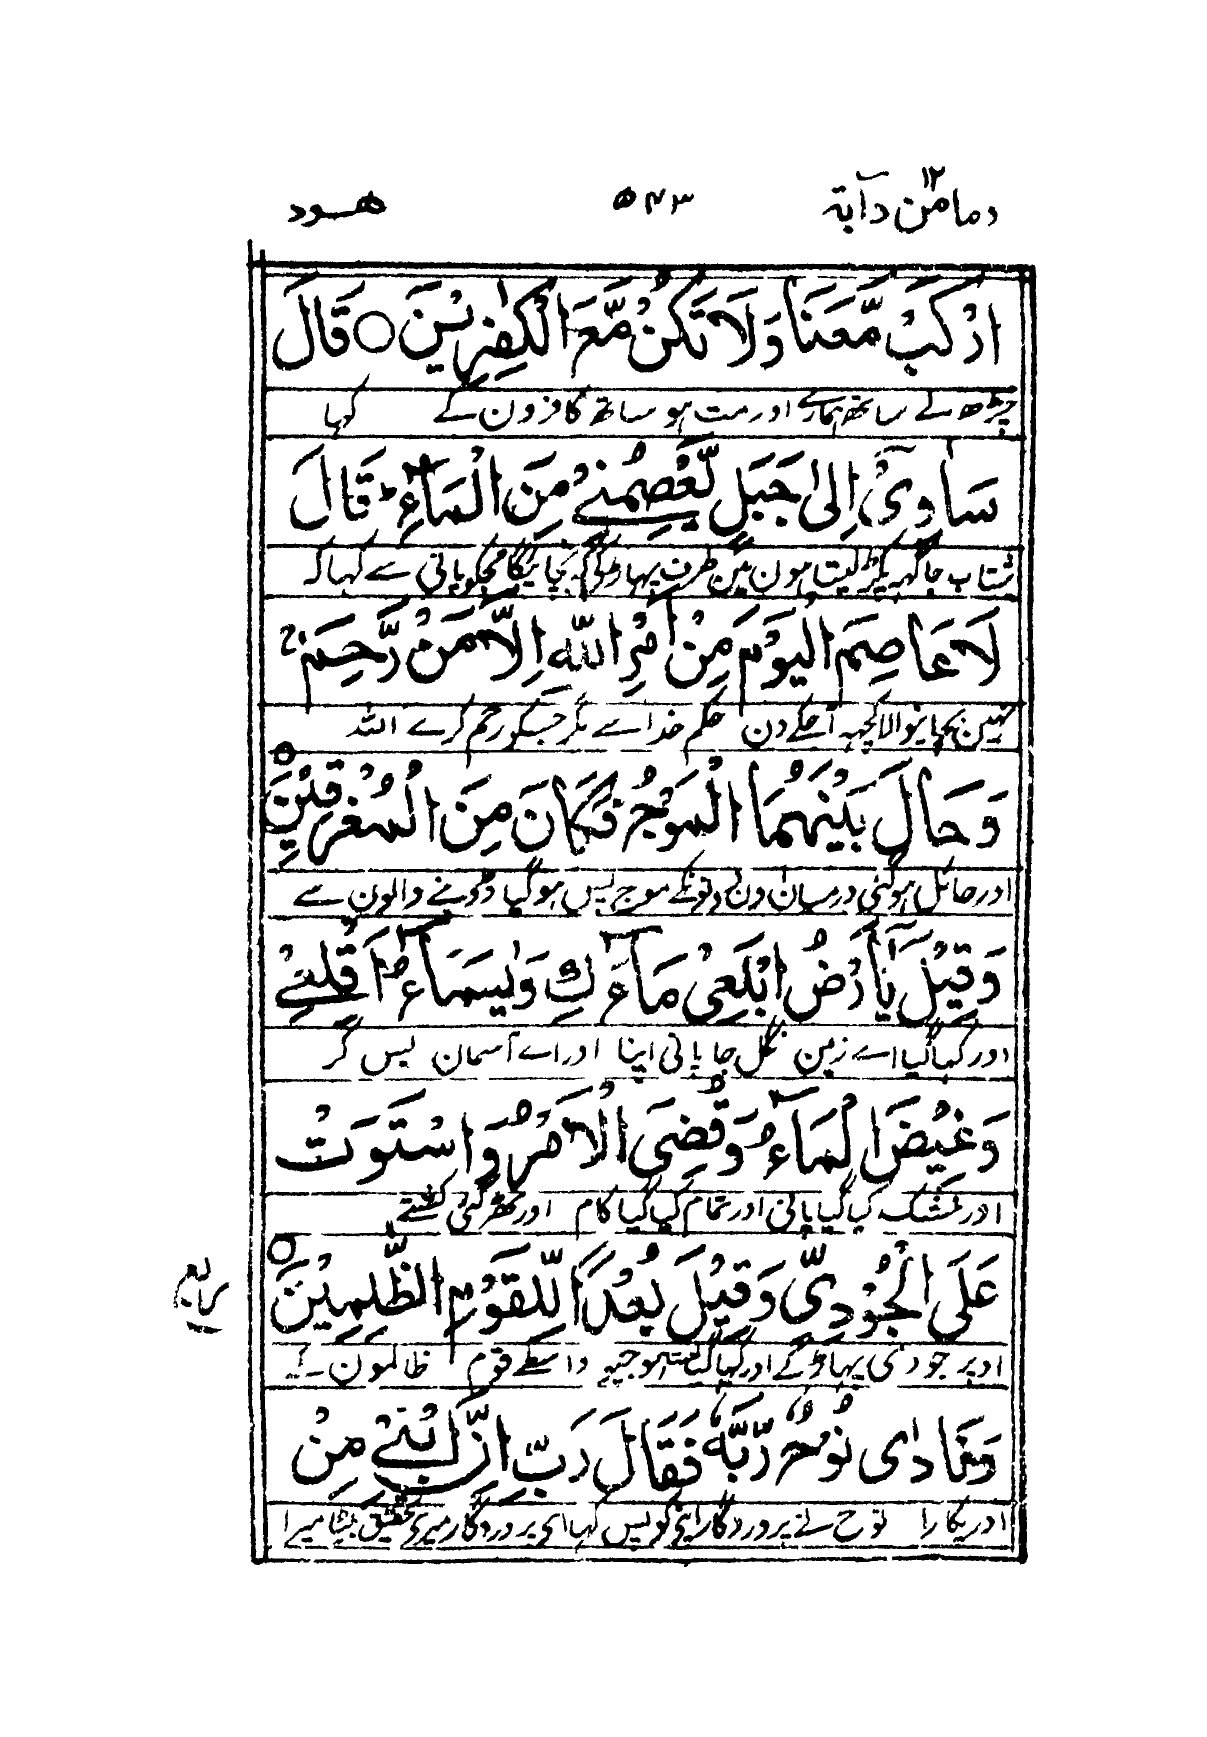 ومامن دآبة ۱۲ ۵۴۳ هود
ارْكَبْ مَّعَنَا وَلَا تَكُنْ مَّعَ الْكٰفِرِيْنَ ○ قَالَ
چڑھ لے ساتھ ہمارے اور مت ہو ساتھ کافرون کے کہا
سَاٰوِيْٓ اِلٰى جَبَلٍ يَّعْصِمُنِيْ مِنَ الْمَآءِ ؕ قَالَ
شتاب جاگہہ پکڑ لیتا ہون مین طرف پہاڑ کو کہ بچائیگا مجکو پانی سے کہا کہ
لَا عَاصِمَ الْيَوْمَ مِنْ اَمْرِ اللّٰهِ اِلَّا مَنْ رَّحِمَ ۚ
نہین بچانیوالا کچہہ آجکے دن حکم خدا سے مگر جسکو رحم کرے اللہ
وَحَالَ بَيْنَهُمَا الْمَوْجُ فَكَانَ مِنَ الْمُغْرَقِيْنَ ○
اور حائل ہو گئی درمیان دونونکے موج پس ہو گیا ڈوبنے والون سے
وَقِيْلَ يٰٓاَرْضُ ابْلَعِيْ مَآءَكِ وَيٰسَمَآءُ اَقْلِعِيْ
اور کہا گیا اے زمین نگل جا پانی اپنا اور اے آسمان بس کر
وَغِيْضَ الْمَآءُ وَقُضِيَ الْاَمْرُ وَاسْتَوَتْ
اور خشک کیا گیا پانی اور تمام کیا گیا کام اور ٹھر گئی کشتی
عَلَى الْجُوْدِيِّ وَقِيْلَ بُعْدًا لِّلْقَوْمِ الظّٰلِمِيْنَ ○
اوپر جودی پہاڑ کے اور کہا گیا لعنت ہوجیو واسطے قوم ظالمون کے
وَنَادٰى نُوْحٌ رَّبَّهٗ فَقَالَ رَبِّ اِنَّ ابْنِيْ مِنْ
اور پکارا نوح نے پروردگار اپنے کو پس کہا ای پروردگار میرے تحقیق بیٹا میرا